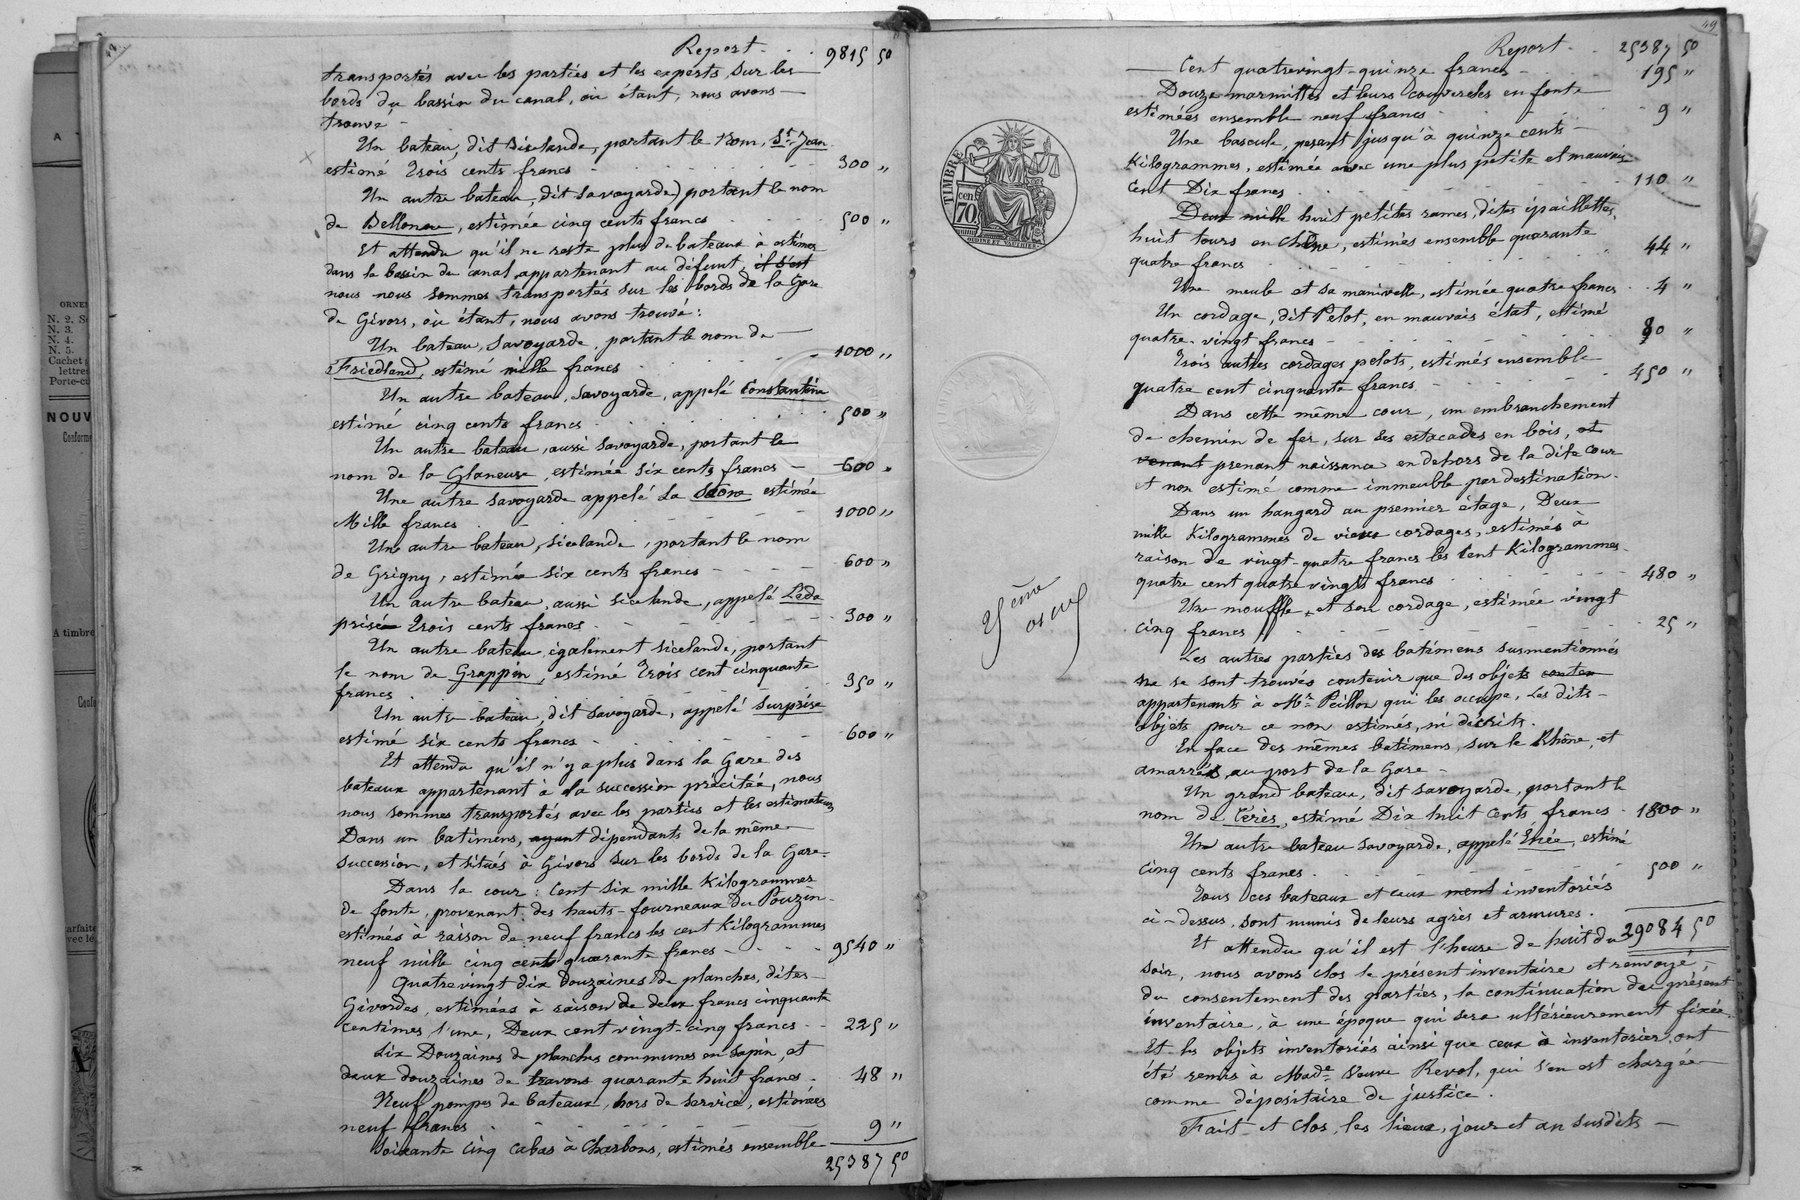 49
Report . . . 9815 50
transportés avec les parties et les experts sur les
bords du bassin du canal, où étant, nous avons
trouvé
Un bateau, dit Sicelande, portant le nom, St Jean
estimé trois cents francs . . . 300 "
Un autre bateau, dit Savoyarde, portant le nom
de Bellonne, estimée cinq cents francs . . . 500 "
Et attendu qu'il ne reste plus de bateaux à estimer
dans le bassin du canal, appartenant au défunt, il s'est
nous nous sommes transportés sur les bords de la Gare
de Givors, où étant, nous avons trouvé :
Un bateau, Savoyarde, portant le nom de
Friedland, estimé mille francs . . . 1000 "
Un autre bateau, Savoyarde, appelé Constantine
estimé cinq cents francs . . . 500 "
Un autre bateau, aussi Savoyarde, portant le
nom de la Glaneuse, estimée six cents francs - 600 "
Une autre Savoyarde appelé La Saône estimée
Mille francs . . . 1000 "
Un autre bateau, Sicelande, portant le nom
de Grigny, estimé six cents francs - - - 600 "
Un autre bateau, aussi Sicelande, appelé Léda
prisé trois cents francs . - - - 300 "
Un autre bateau, également Sicelande, portant
le nom de Grappin, estimé trois cent cinquante
francs . . . 350 "
Un autre bateau, dit Savoyarde, appelé Surprise
estimé six cents francs - - - 600 "
Et attendu qu'il n'y a plus dans la Gare des
bateaux appartenant à la succession précitée, nous
nous sommes transportés avec les parties et les estimateurs
Dans un batimens, ayant dépendants de la même
succession, et situés à Givors sur les bords de la Gare.
Dans la cour : Cent six mille Kilogrammes
de fonte, provenant des hauts-fourneaux du Pouzin
estimés à raison de neuf francs les cent Kilogrammes
neuf mille cinq cents quarante francs - - - 9540 "
Quatre vingt dix Douzaines de planches, dites
Givordes, estimées à raison de deux francs cinquante
centimes l'une, Deux cent vingt-cinq francs - - 225 "
Six Douzaines de planches communes en sapin, et
deux douzaines de travons quarante huit francs - 48 "
Neuf pompes de bateaux, hors de service, estimées
neuf francs - - - 9 "
Soixante cinq cabas à Charbons, estimés ensemble
25387 50
49
Report . . . 25387 50
Cent quatrevingt-quinze francs - 195 "
Douze marmittes et leurs couvercles en fonte
estimées ensemble neuf francs . . . 9 "
Une bascule, pesant jusqu'à quinze cents
Kilogrammes, estimée avec une plus petite et mauvaise
Cent Dix francs . . . 110 "
Deux mille huit petites rames, dites épaillettes,
huit tours en chêne, estimés ensemble quarante
quatre francs . . . 44 "
Une meule et sa manivelle, estimée quatre francs . . 4 "
Un cordage, dit Pelot, en mauvais état, estimé
quatre-vingt francs - - - 80 "
Trois autres cordages pelots, estimés ensemble
quatre cent cinquante francs - - - 450 "
Dans cette même cour, un embranchement
de chemin de fer, sur ses estacades en bois, et
venant prenant naissance en dehors de la dite Cour
et non estimé comme immeuble par destination.
Dans un hangard au premier étage, Deux
mille Kilogrammes de vieux cordages, estimés à
raison de vingt-quatre francs les cent Kilogrammes
quatre cent quatre vingts francs - - - 480 "
Une mouffle et son cordage, estimée vingt
cinq francs - - - 25 "
Les autres parties des batimens susmentionnés
ne se sont trouvés contenir que des objets
appartenants à Mr Peillon qui les occupe. Les dits
objets pour ce non estimés, ni décrits.
En face des mêmes batimens, sur le Rhône, et
amarrés, au port de la Gare -
Un grand bateau, dit Savoyarde, portant le
nom de Cérès, estimé Dix huit Cents francs - 1800 "
Un autre bateau Savoyarde, appelé, estimé
cinq cents francs . - - - 500 "
Tous ces bateaux et ceux inventoriés
ci-dessus, sont munis de leurs agrès et armures.
29084 50
Et attendu qu'il est l'heure de huit du
soir, nous avons clos le présent inventaire et renvoyé
du consentement des parties, la continuation du présent
inventaire, à une époque qui sera ultérieurement fixée.
Et les objets inventoriés ainsi que ceux à inventorier, ont
été remis à Made Veuve Revol, qui s'en est chargée
comme dépositaire de justice.
Fait et clos, les lieux, jour et an susdits -
TIMBRE
cen.
70
A
ORNE
N. 2. S
N. 3.
N. 4.
N. 5.
Cachet
lettre
Porte-c
NOUV
Conform
A timbre
Confo
arfaite
vec le